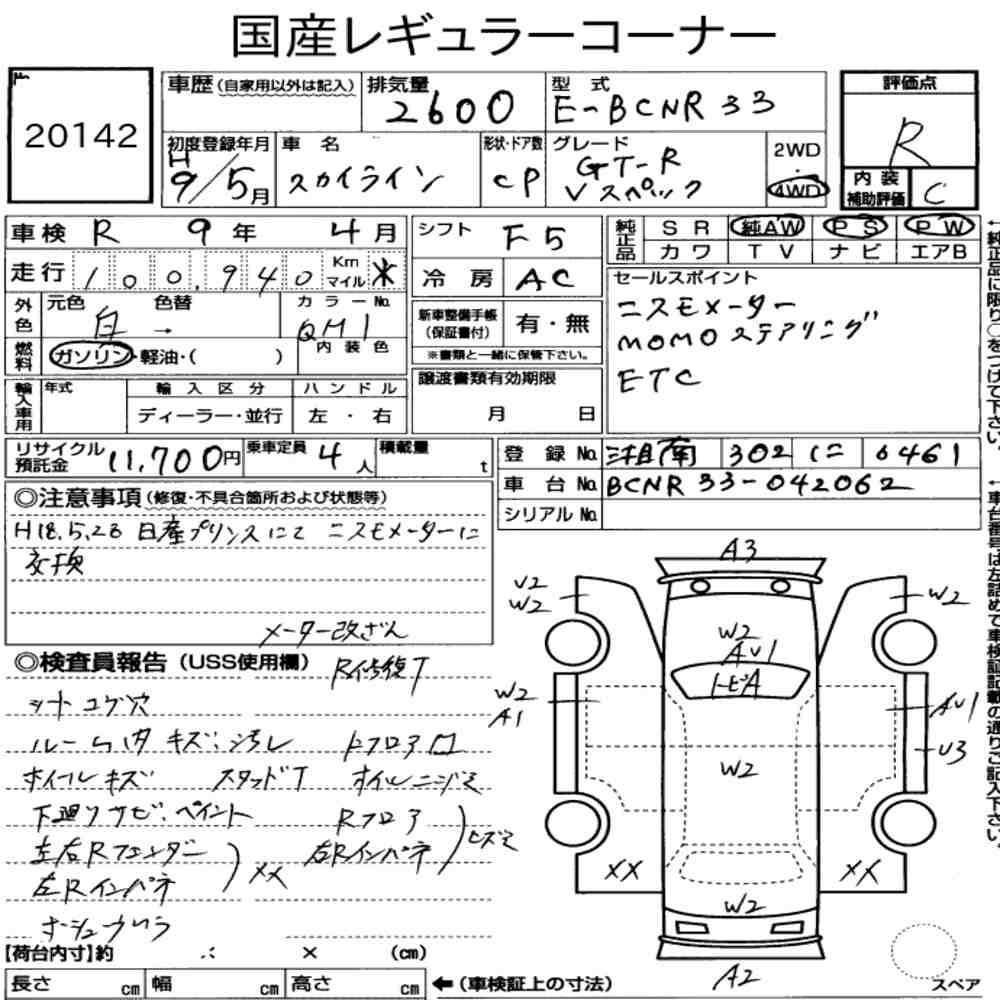 国産レギュラーコーナー
20142
車歴(自家用以外は記入)
排気量 2600
型式 E-BCNR33
評価点 R
初度登録年月 H 9/5月
車名 スカイライン
形状・ドア数 CP
グレード GT-R Vスペック
2WD
4WD
内装補助評価 C
車検 R 9年 4月
シフト F5
純正品 SR 純AW PS PW
カワ TV ナビ エアB
走行 100,940 Km マイル ※
冷房 AC
セールスポイント
ニスモメーター
MOMOステアリング
ETC
外色 元色 白 色替 → カラーNo. QM1
内装色
燃料 ガソリン・軽油・( )
新車整備手帳(保証書付) 有・無
※書類と一緒に保管下さい。
譲渡書類有効期限
月 日
輸入車用 年式 輸入区分 ハンドル
ディーラー・並行 左・右
リサイクル預託金 11,700円
乗車定員 4人
積載量 t
登録No. 湘南 302 に 6461
車台No. BCNR33-042062
シリアルNo.
◎注意事項(修復・不具合箇所および状態等)
H18.5.28 日産プリンスにて ニスモメーターに
交換
メーター改ざん
◎検査員報告(USS使用欄)
R修復T
シート コゲ穴
ルーム内 キズ・汚レ
Rフロア凹
ホイールキズ
スタッドT
オイルニジミ
下廻りサビ・ペイント
Rフロア
左右Rフェンダー
右Rインパネ
ヒズミ
左Rインパネ
XX
【荷台内寸】約 .: × (cm)
長さ cm 幅 cm 高さ cm
←(車検証上の寸法)
A3
U2
W2
W2
W2
AU1
トビA
W2
A1
AU1
U3
W2
XX
XX
W2
A2
スペア
←純正品に限り○をつけて下さい。
←車台番号は左詰めで車検証記載の通りご記入下さい。